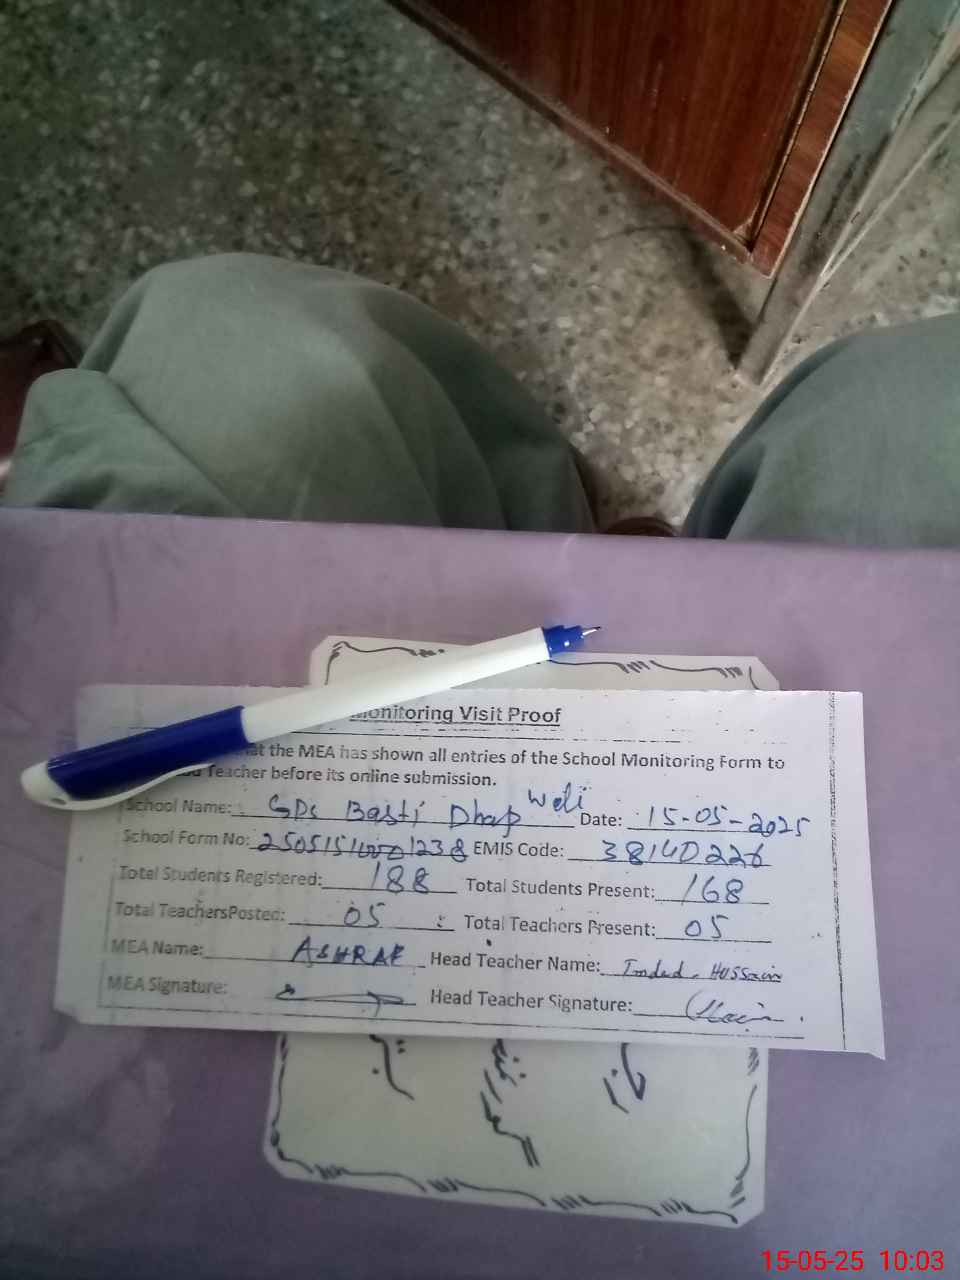 onitoring Visit Proof
at the MEA has shown all entries of the School Monitoring Form to
Teacher before its online submission.
School Name: GPS Basti Dhap Wali Date: 15-05-2025
School Form No: EMIS Code: 38140226
Total Students Registered: 188 Total Students Present: 168
Total TeachersPosted: 05 Total Teachers Present: 05
MEA Name: ASHRAF Head Teacher Name: Imdad Hussain
MEA Signature: Head Teacher Signature:
15-05-25 10:03